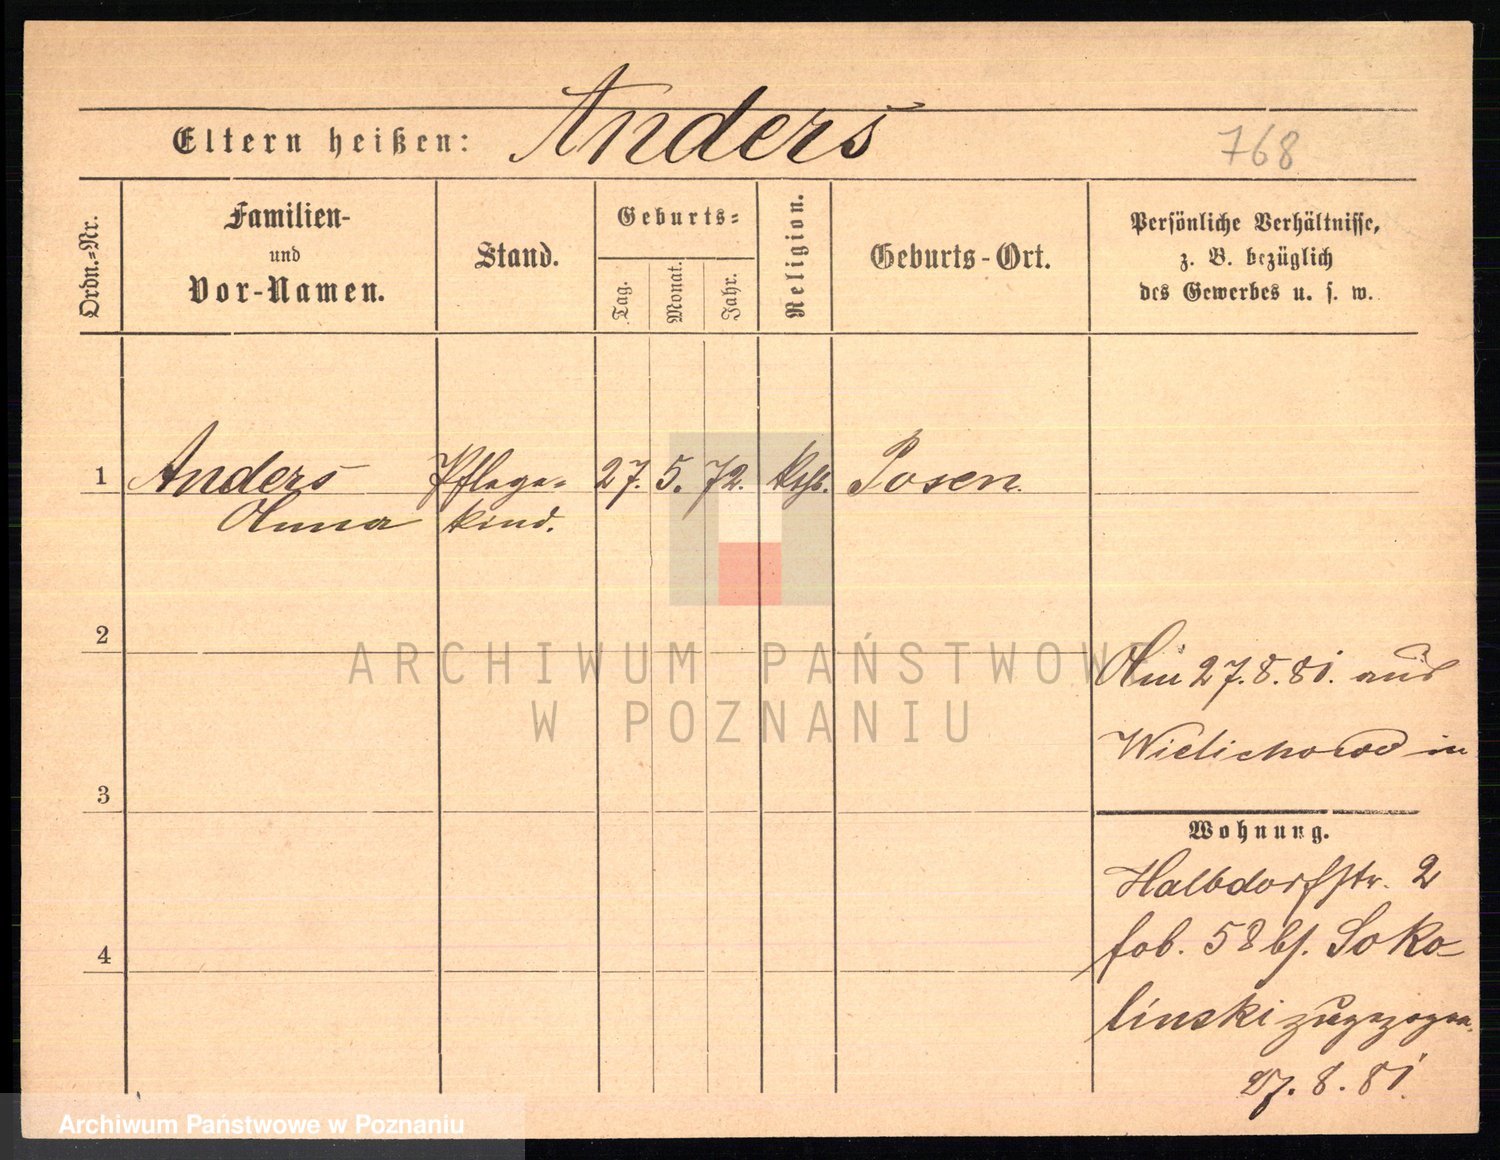 Eltern heißen: Anders
768
Ordn.-Nr.
Familien-
und
Vor-Namen.
Stand.
Geburts-
Tag.
Monat.
Jahr.
Religion.
Geburts-Ort.
Persönliche Verhältnisse,
z. B. bezüglich
des Gewerbes u. s. w.
1 Anders Pflege- 27. 5. 72. kth. Posen.
Anna kind.
2
ARCHIWUM PAŃSTWOWE
W POZNANIU
Am 27.8.81. aus
Wielichowo in
3
Wohnung.
Halbdorfstr. 2
58 bs. Soko-
4
linski zugezogen.
27.8.81.
Archiwum Państwowe w Poznaniu